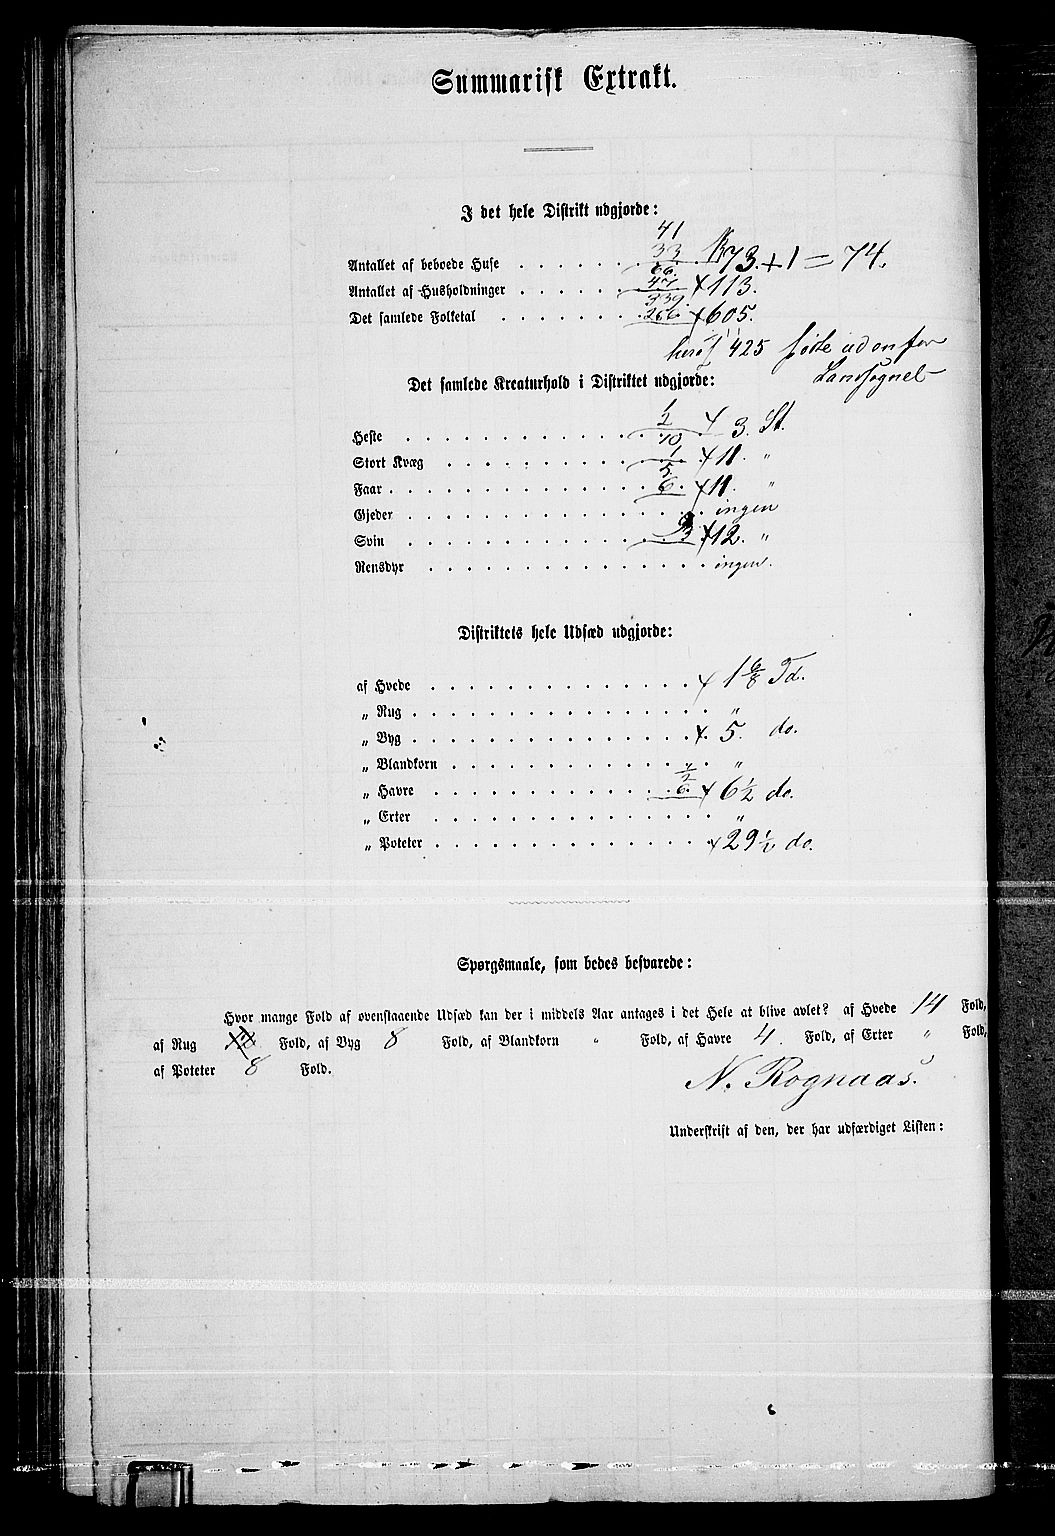 Summarisk Extrakt.
I det hele Distrikt udgjorde:
41
33
Antallet af beboede Huse 73 + 1 = 74.
66.
47
Antallet af Husholdninger 113.
339
266
Det samlede Folketal 605.
heraf 425 fødte udenfor
Landsognet
Det samlede Kreaturhold i Distriktet udgjorde:
1
2
Heste 3. St.
10
1
Stort Kvæg 11. "
5
6
Faar 11. "
Gjeder ingen
Svin 12. "
Rensdyr ingen.
Distriktets hele Udsæd udgjorde:
af Hvede 1 6/8 Td.
„ Rug "
„ Byg 5. do.
„ Blandkorn "
1/2
6.
„ Havre 6 1/2 do.
„ Erter "
„ Poteter 29 1/2 do.
Spørgsmaale, som bedes besvarede:
Hvor mange Fold af ovenstaaende Udsæd kan der i middels Aar antages i det Hele at blive avlet? af Hvede 14 Fold,
af Rug Fold, af Byg 8 Fold, af Blandkorn " Fold, af Havre 4. Fold, af Erter " Fold,
af Poteter 8 Fold.
N. Rognaas.
Underskrift af den, der har udfærdiget Listen: